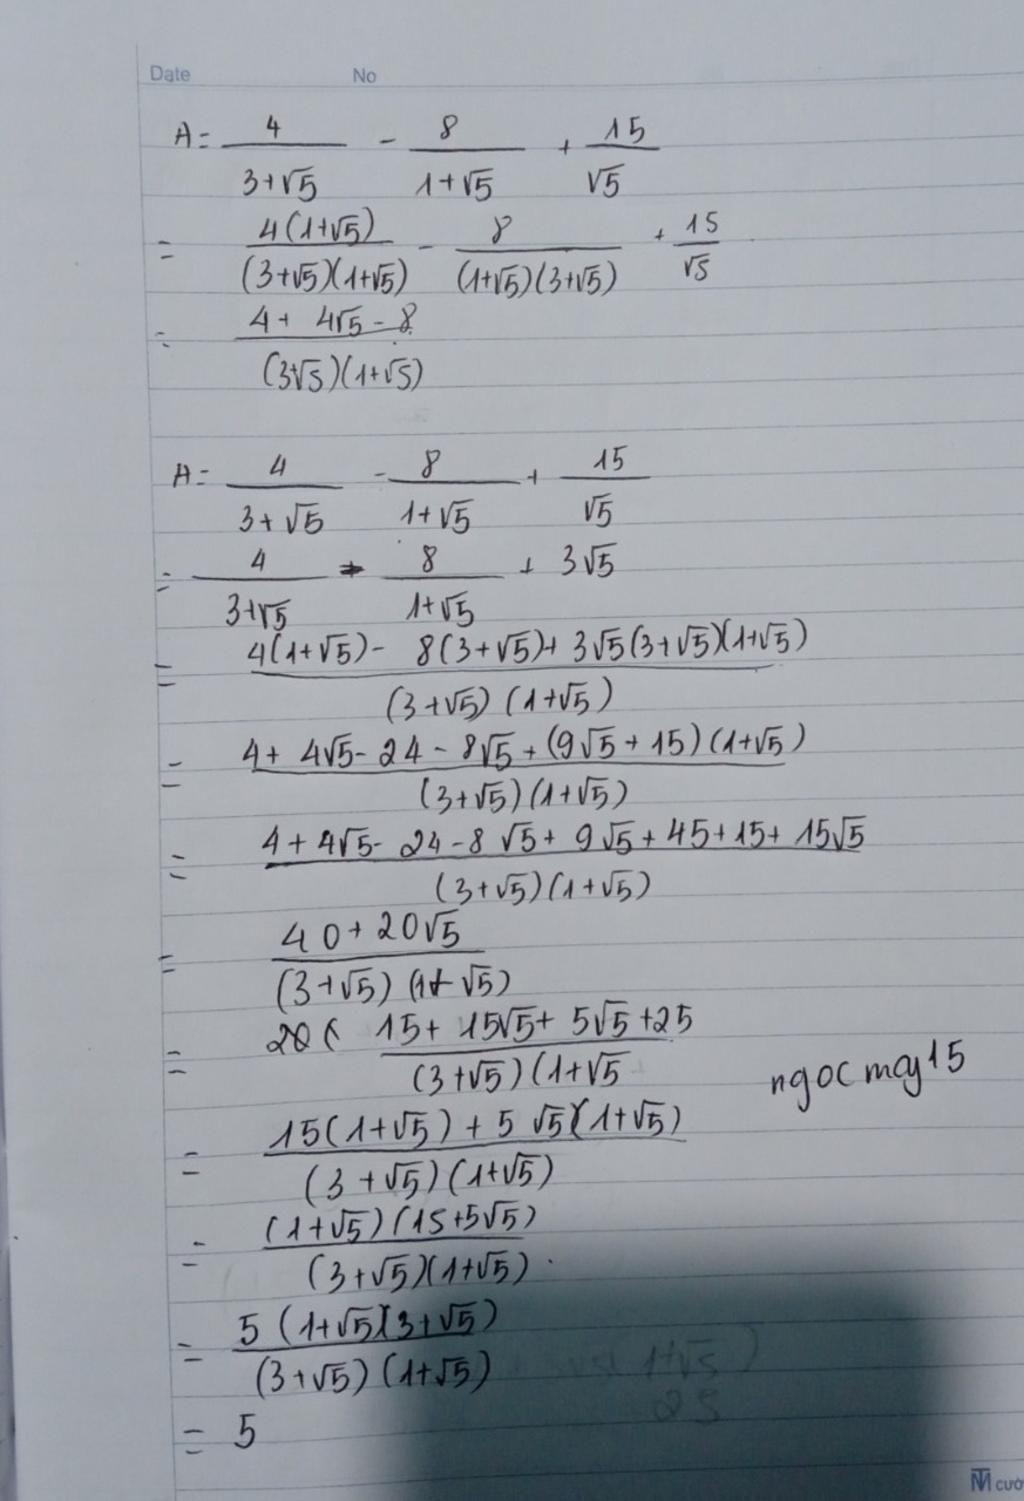 Date No
A = 4/(3+√5) - 8/(1+√5) + 15/√5
= 4(1+√5)/((3+√5)(1+√5)) - 8/((1+√5)(3+√5)) + 15/√5
= (4 + 4√5 - 8)/((3+√5)(1+√5))
A = 4/(3+√5) - 8/(1+√5) + 15/√5
= 4/(3+√5) - 8/(1+√5) + 3√5
= (4(1+√5) - 8(3+√5) + 3√5(3+√5)(1+√5))/((3+√5)(1+√5))
= (4 + 4√5 - 24 - 8√5 + (9√5 + 15)(1+√5))/((3+√5)(1+√5))
= (4 + 4√5 - 24 - 8√5 + 9√5 + 45 + 15 + 15√5)/((3+√5)(1+√5))
= (40 + 20√5)/((3+√5)(1+√5))
= 20( (15 + 15√5 + 5√5 + 25)/((3+√5)(1+√5)
ngocmay15
= (15(1+√5) + 5√5(1+√5))/((3+√5)(1+√5))
= (1+√5)(15+5√5)/((3+√5)(1+√5)).
= 5(1+√5)(3+√5)/((3+√5)(1+√5))
= 5